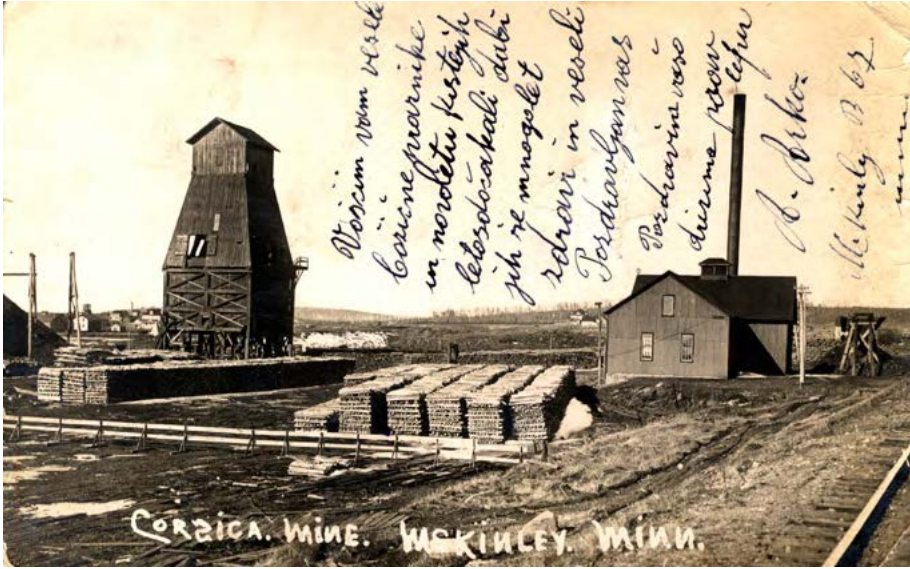 Vošcim vam vesele
božične praznike
in novoletu kusterih
letosdočakali dabi
jih še mnogolet
zdravi in veseli
Pozdravljamvas
Pozdravivašo
družino
A. Arko.
McKinly B 67
minn
CORSICA. MINE. MCKINLEY. MINN.